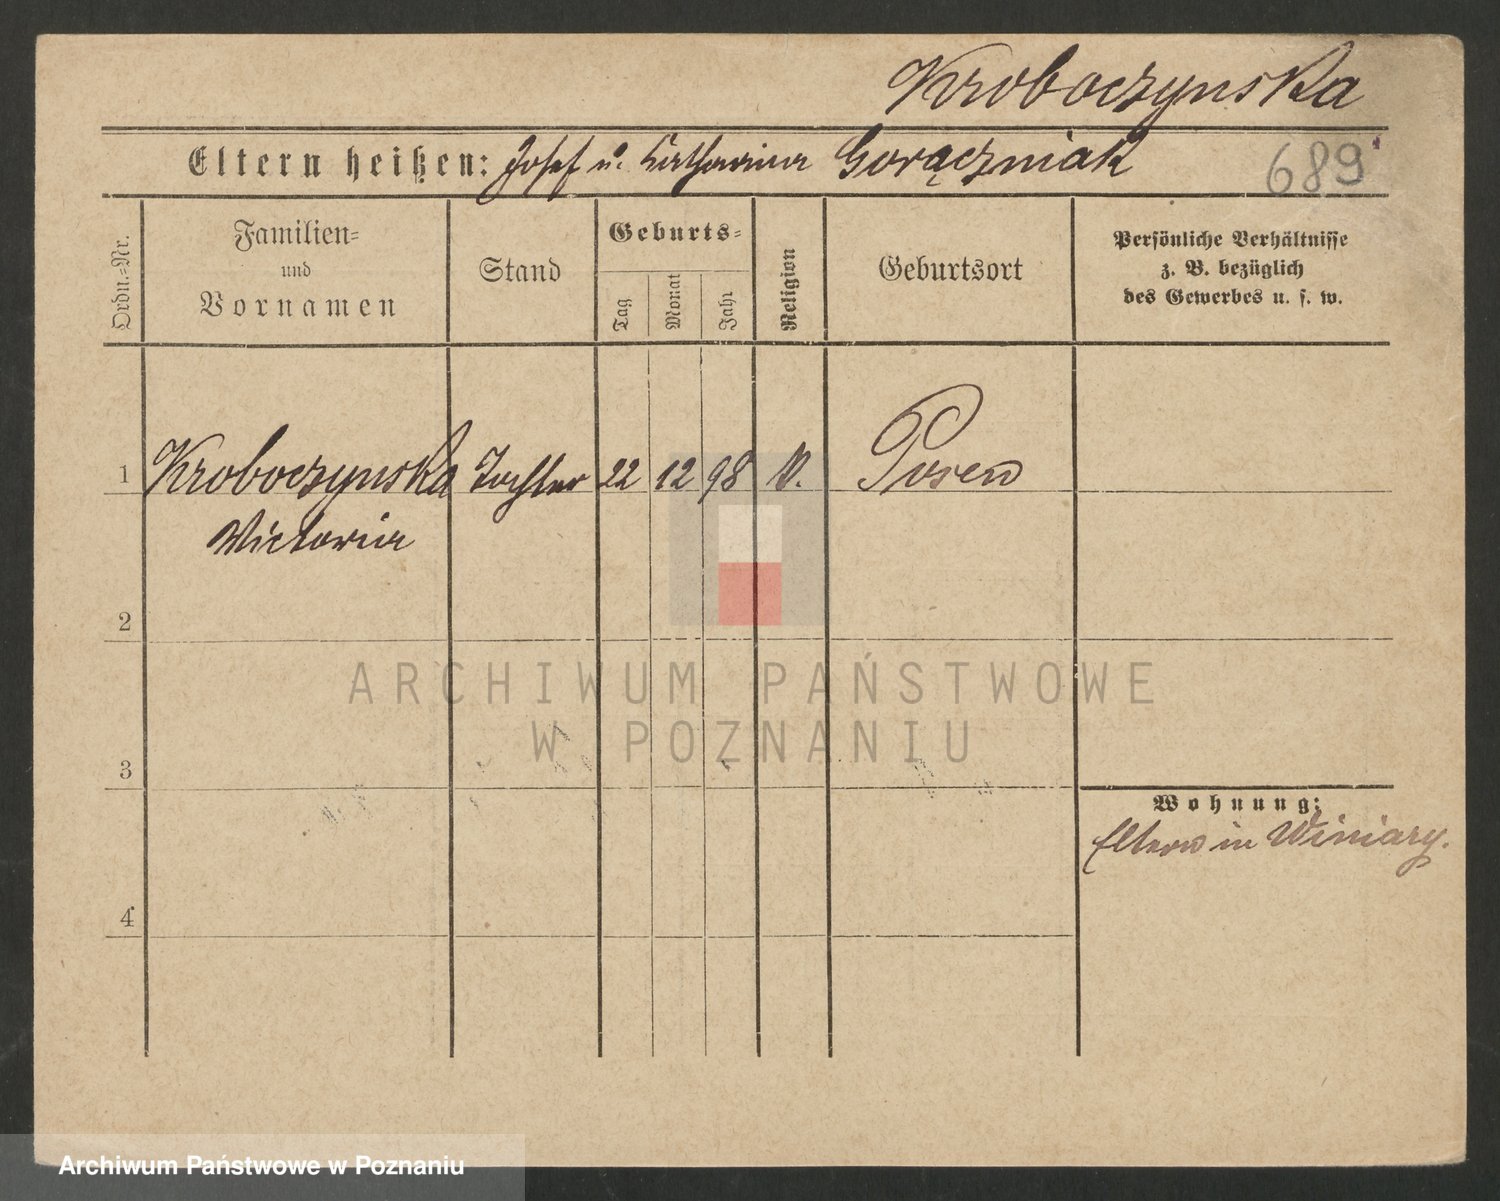 Kroboczynska
Eltern heißen: Josef u. Katharina Gorączniak
689
Ordn.=Nr.
Familien=
und
Vornamen
Stand
Geburts=
Tag
Monat
Jahr
Religion
Geburtsort
Persönliche Verhältnisse
z. B. bezüglich
des Gewerbes u. s. w.
1 Kroboczynska Tochter 22 12 98 Posen
Victoria
2
ARCHIWUM PAŃSTWOWE
W POZNANIU
3
Wohnung:
Eltern in Winiary.
4
Archiwum Państwowe w Poznaniu